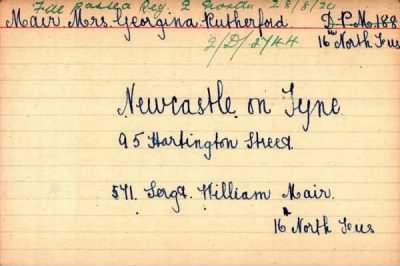 File passed Reg. 2 28/8/20
Mair Mrs. Georgina Rutherford D.P.M. 188
2/D/2744 16 North Fus
Newcastle on Tyne
95 Hartington Street.
571. Sergt. William Mair.
16 North Fus